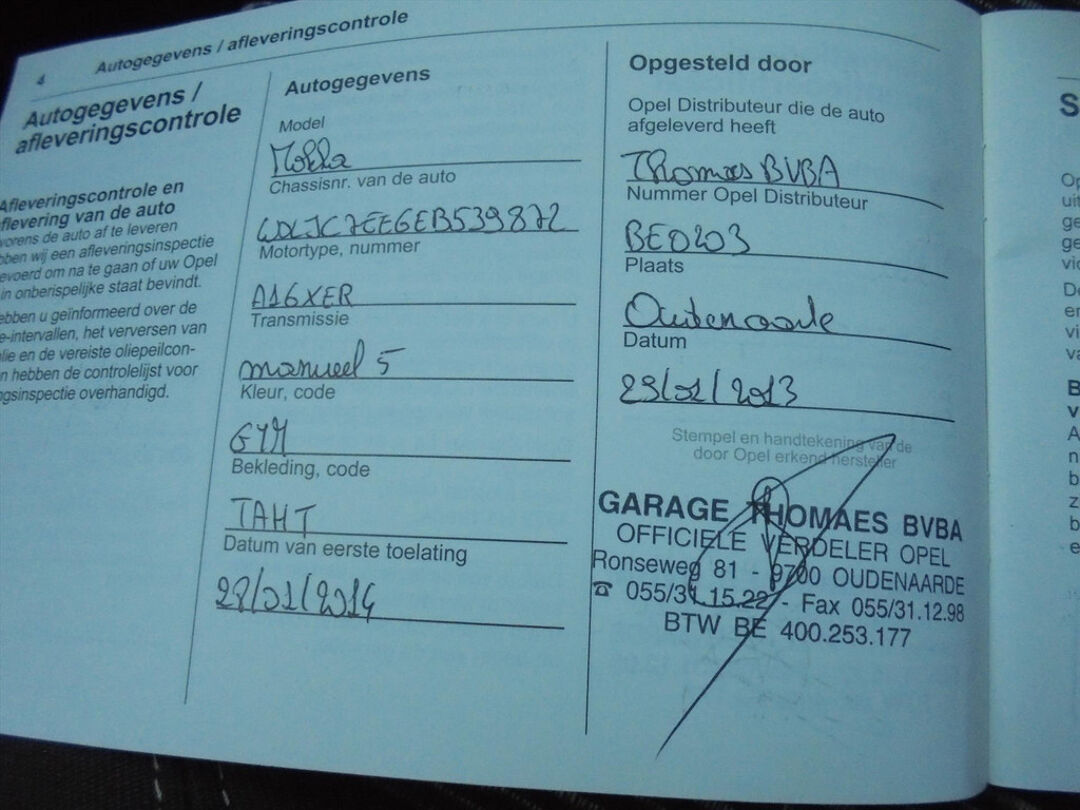 4 Autogegevens / afleveringscontrole
Autogegevens /
afleveringscontrole
Afleveringscontrole en
flevering van de auto
vorens de auto af te leveren
bben wij een afleveringsinspectie
evoerd om na te gaan of uw Opel
in onberispelijke staat bevindt.
ebben u geïnformeerd over de
e-intervallen, het verversen van
lie en de vereiste oliepeilcon-
n hebben de controlelijst voor
gsinspectie overhandigd.
Autogegevens
Model
Mokka
Chassisnr. van de auto
Motortype, nummer
A16XER
Transmissie
manueel 5
Kleur, code
Bekleding, code
TAHT
Datum van eerste toelating
28/01/2014
Opgesteld door
Opel Distributeur die de auto
afgeleverd heeft
Thomaes BVBA
Nummer Opel Distributeur
BE0203
Plaats
Datum
Stempel en handtekening van de
door Opel erkend hersteller
GARAGE THOMAES BVBA
OFFICIELE VERDELER OPEL
Ronseweg 81 - 9700 OUDENAARDE
☎ 055/31.15.22 - Fax 055/31.12.98
BTW BE 400.253.177
S
Op
uit
ge
ge
vic
De
er
vi
va
B
v
A
n
b
z
b
e